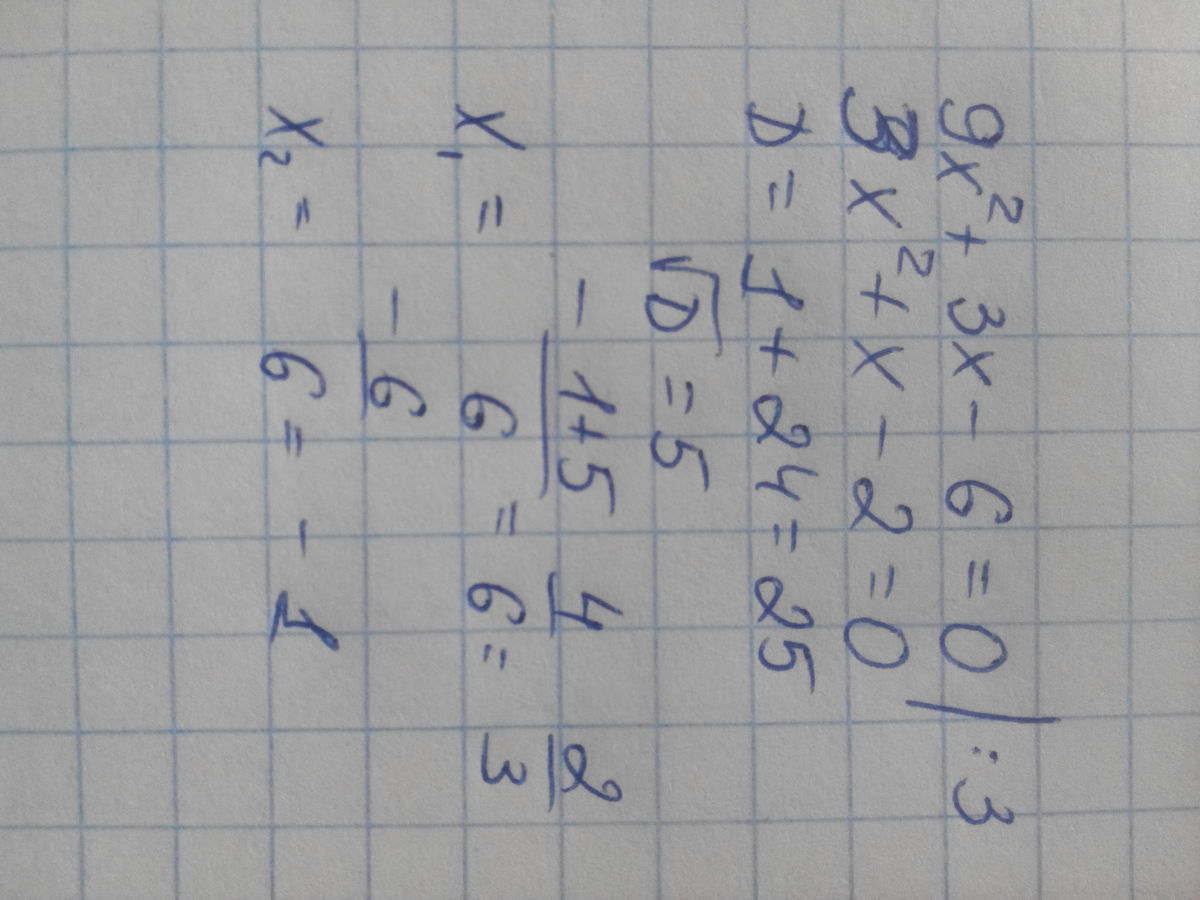 9x² + 3x - 6 = 0 | :3
3x² + x - 2 = 0
D = 1 + 24 = 25
√D = 5
x₁ = (-1+5)/6 = 4/6 = 2/3
x₂ = -6/6 = -1